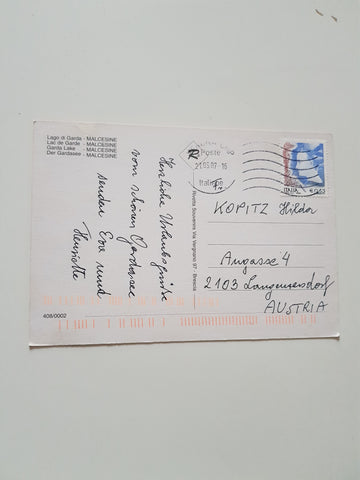 Lago di Garda - MALCESINE
Lac de Garde - MALCESINE
Garda Lake - MALCESINE
Der Gardasee - MALCESINE
Herzliche Urlaubsgrüße
vom schönen Gardasee
senden Eva und
Henriette
408/0002
Rivetta Souvenirs Via Vergnano 97 - Brescia
Poste
21.05.07-16
Italiane
ITALIA
KOPITZ Hilda
Augasse 4
2103 Langenzersdorf
AUSTRIA